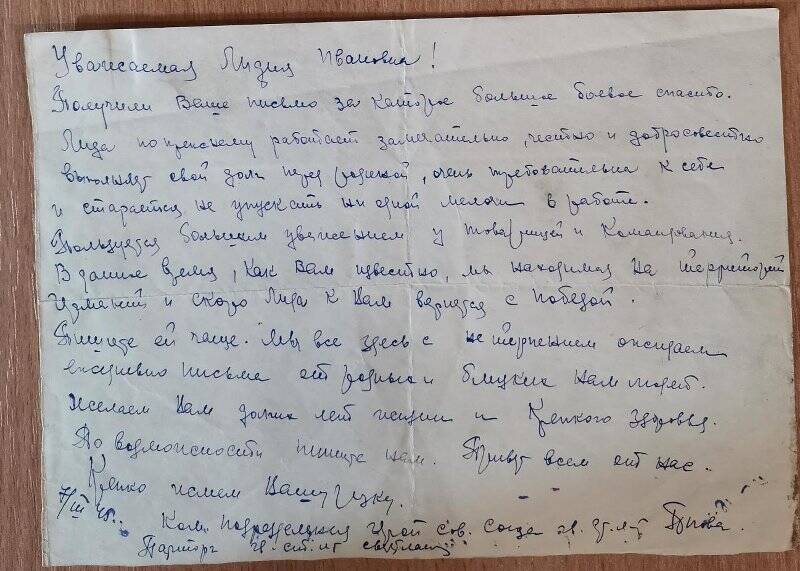 Уважаемая Лидия Ивановна!
Получили Ваше письмо за которое большое боевое спасибо.
Лида по прежнему работает замечательно, честно и добросовестно
выполняет свой долг перед родиной, очень требовательна к себе
и старается не упускать ни одной мелочи в работе.
Пользуется большим уважением у товарищей и Командования.
В данное время, как Вам известно, мы находимся на территории
Германии и скоро Лида к Вам вернется с победой.
Пишите ей чаще. Мы все здесь с нетерпением ожидаем
ежедневно письма от родных и близких нам людей.
Желаем Вам долгих лет жизни и Крепкого здоровья.
По возможности пишите нам. Привет всем от нас.
Крепко жмем Вашу руку.
7/III 45г. Ком. подразделения Герой Сов. Союза гв.
Парторг гв. ст. л-т